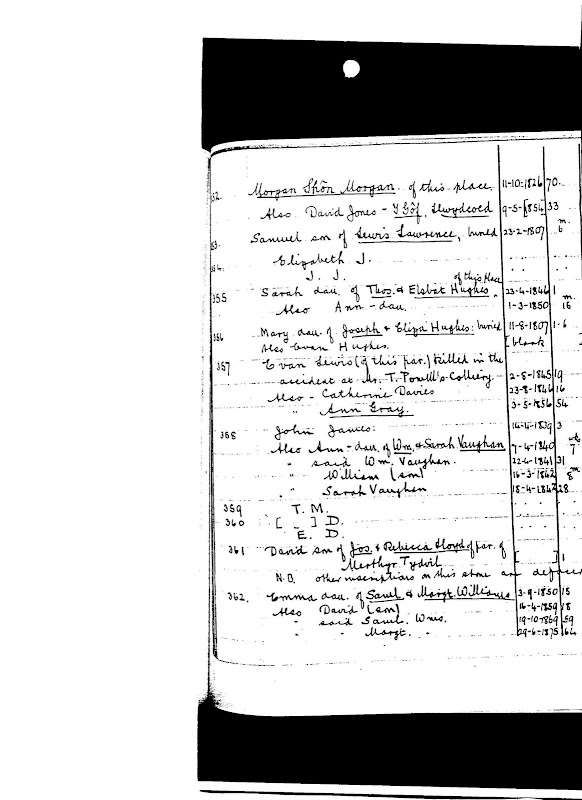 352. Morgan Shôn Morgan of this place. 11-10-1826 70.
Also David Jones - Y Gôf, Llwydcoed 9-5-1854 33
353. Samuel son of Lewis Lawrence, buried 23-2-1807 6 m.
354. Elizabeth J. . . . .
J. J. . . . .
of this place
355 Sarah dau. of Thos. & Elsbat Hughes 23-4-1846 1
Also Ann - dau. 1-3-1850 16 m.
356 Mary dau. of Joseph & Eliza Hughes: buried 11-8-1807 1-6
Also Evan Hughes. [blank ]
357 Evan Lewis (of this par.) killed in the
accident at Mr. T. Powell's Colliery. 2-8-1845 19
Also - Catherine Davies 23-8-1846 16
" Ann Gray. 3-5-1856 54
358 John James: 14-4-1839 3
Also Ann - dau. of Wm. & Sarah Vaughan 7-4-1840 7 wks
" said Wm. Vaughan. 22-4-1841 31
" William (sm) 16-3-1842 8 m
" Sarah Vaughan 18-4-1842 28
359 T. M. . . . .
360 [ _ ] D. . . . .
E. D. . . . .
361 David son of Jos. & Rebecca Lloyd of par. of
Merthyr Tydvil [ ] 1
N.B. other inscriptions on this stone are defaced
362. Emma dau. of Saml. & Margt. Williams 3-9-1850 15
Also David (sm) 16-4-1859 18
" said Saml. Wms. 19-10-1869 59
" " Margt. " 29-6-1875 64